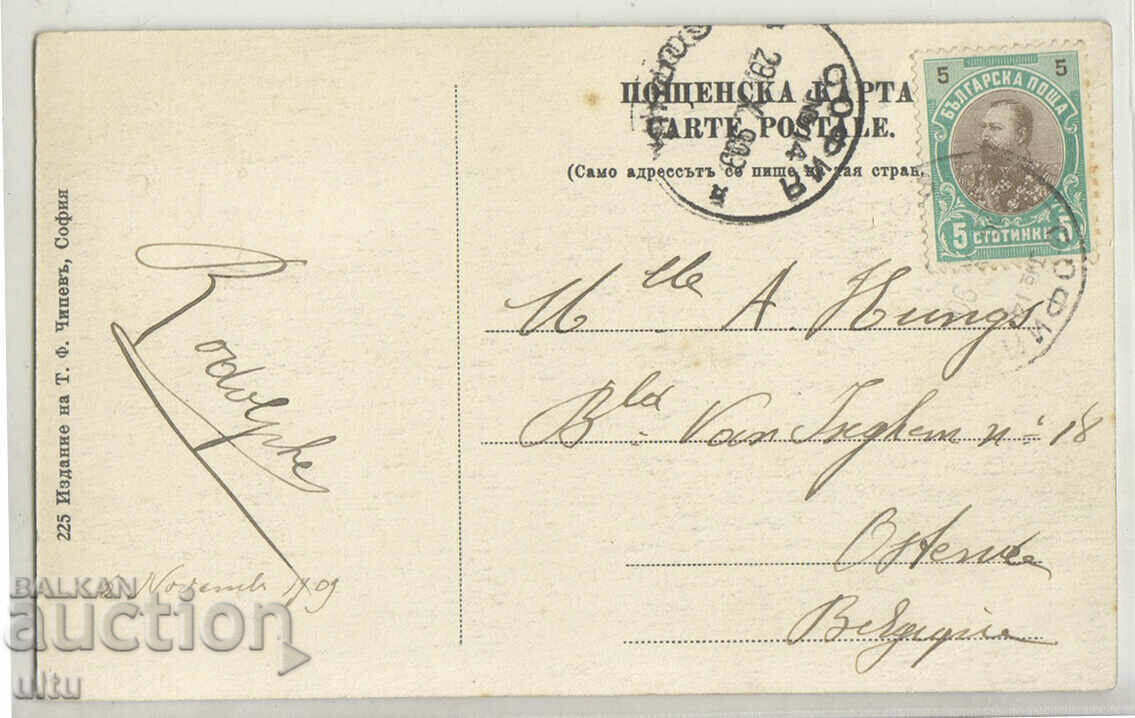 ПОЩЕНСКА КАРТА
CARTE POSTALE.
(Само адрессътъ се пише на тая стран
СОФИЯ
5 5
БЪЛГАРСКА ПОЩА
5 СТОТИНКИ 5
СОФИЯ
225 Издание на Т. Ф. Чипевъ, София
Rodolphe
Novemb 1909
Mlle A. Hungs
Bld Van Iseghem nº 18
Ostende
Belgique
BALKAN
auction
ultu